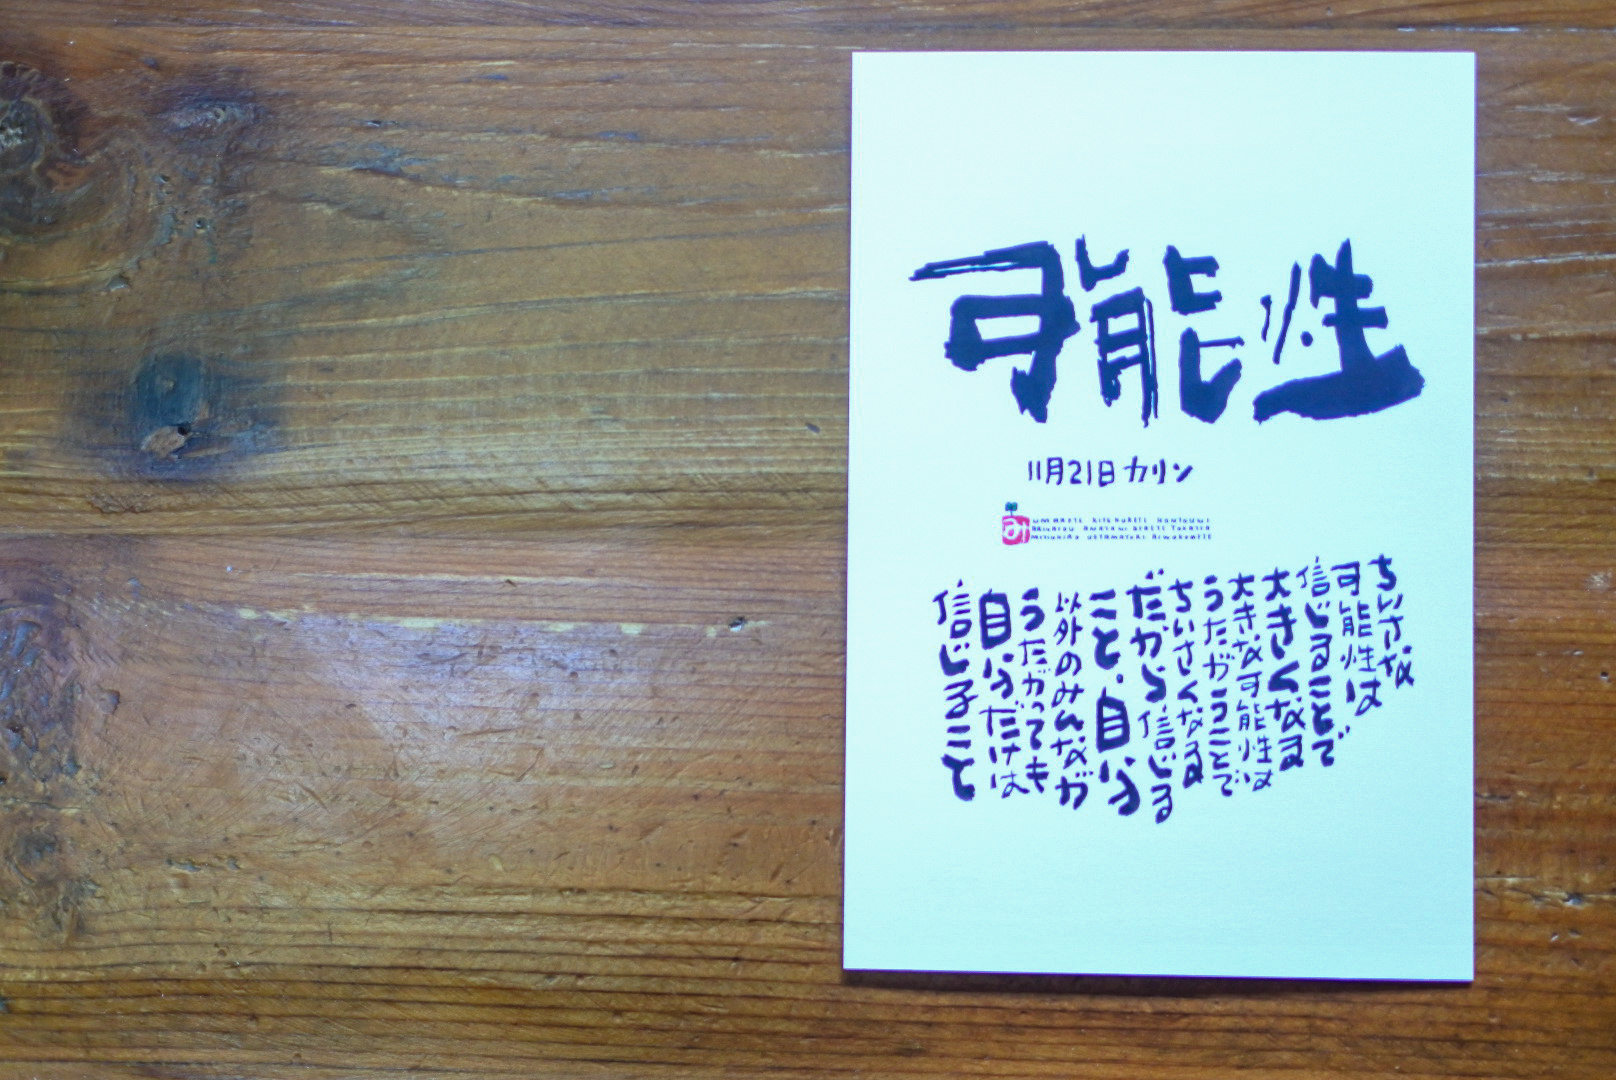 可能性
11月21日 カリン
み
ちいさな
可能性は
信じることで
大きくなる
大きな可能性は
うたがうことで
ちいさくなる
だから信じる
こと。自分
以外のみんなが
うたがっても
自分だけは
信じること